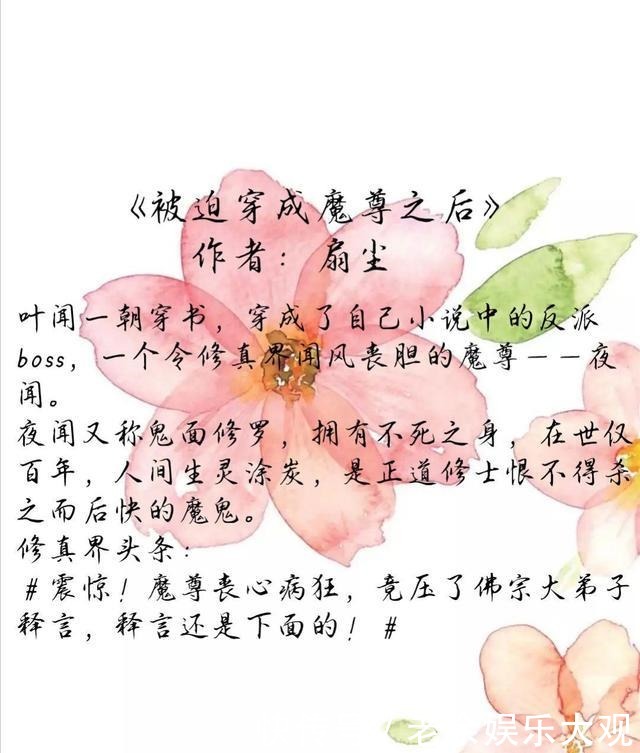 《被迫穿成魔尊之后》
作者：扇尘
叶闻一朝穿书，穿成了自己小说中的反派
boss，一个令修真界闻风丧胆的魔尊——夜
闻。
夜闻又称鬼面修罗，拥有不死之身，在世仅
百年，人间生灵涂炭，是正道修士恨不得杀
之而后快的魔鬼。
修真界头条：
#震惊！魔尊丧心病狂，竟压了佛宗大弟子
释言，释言还是下面的！#
娱乐大观